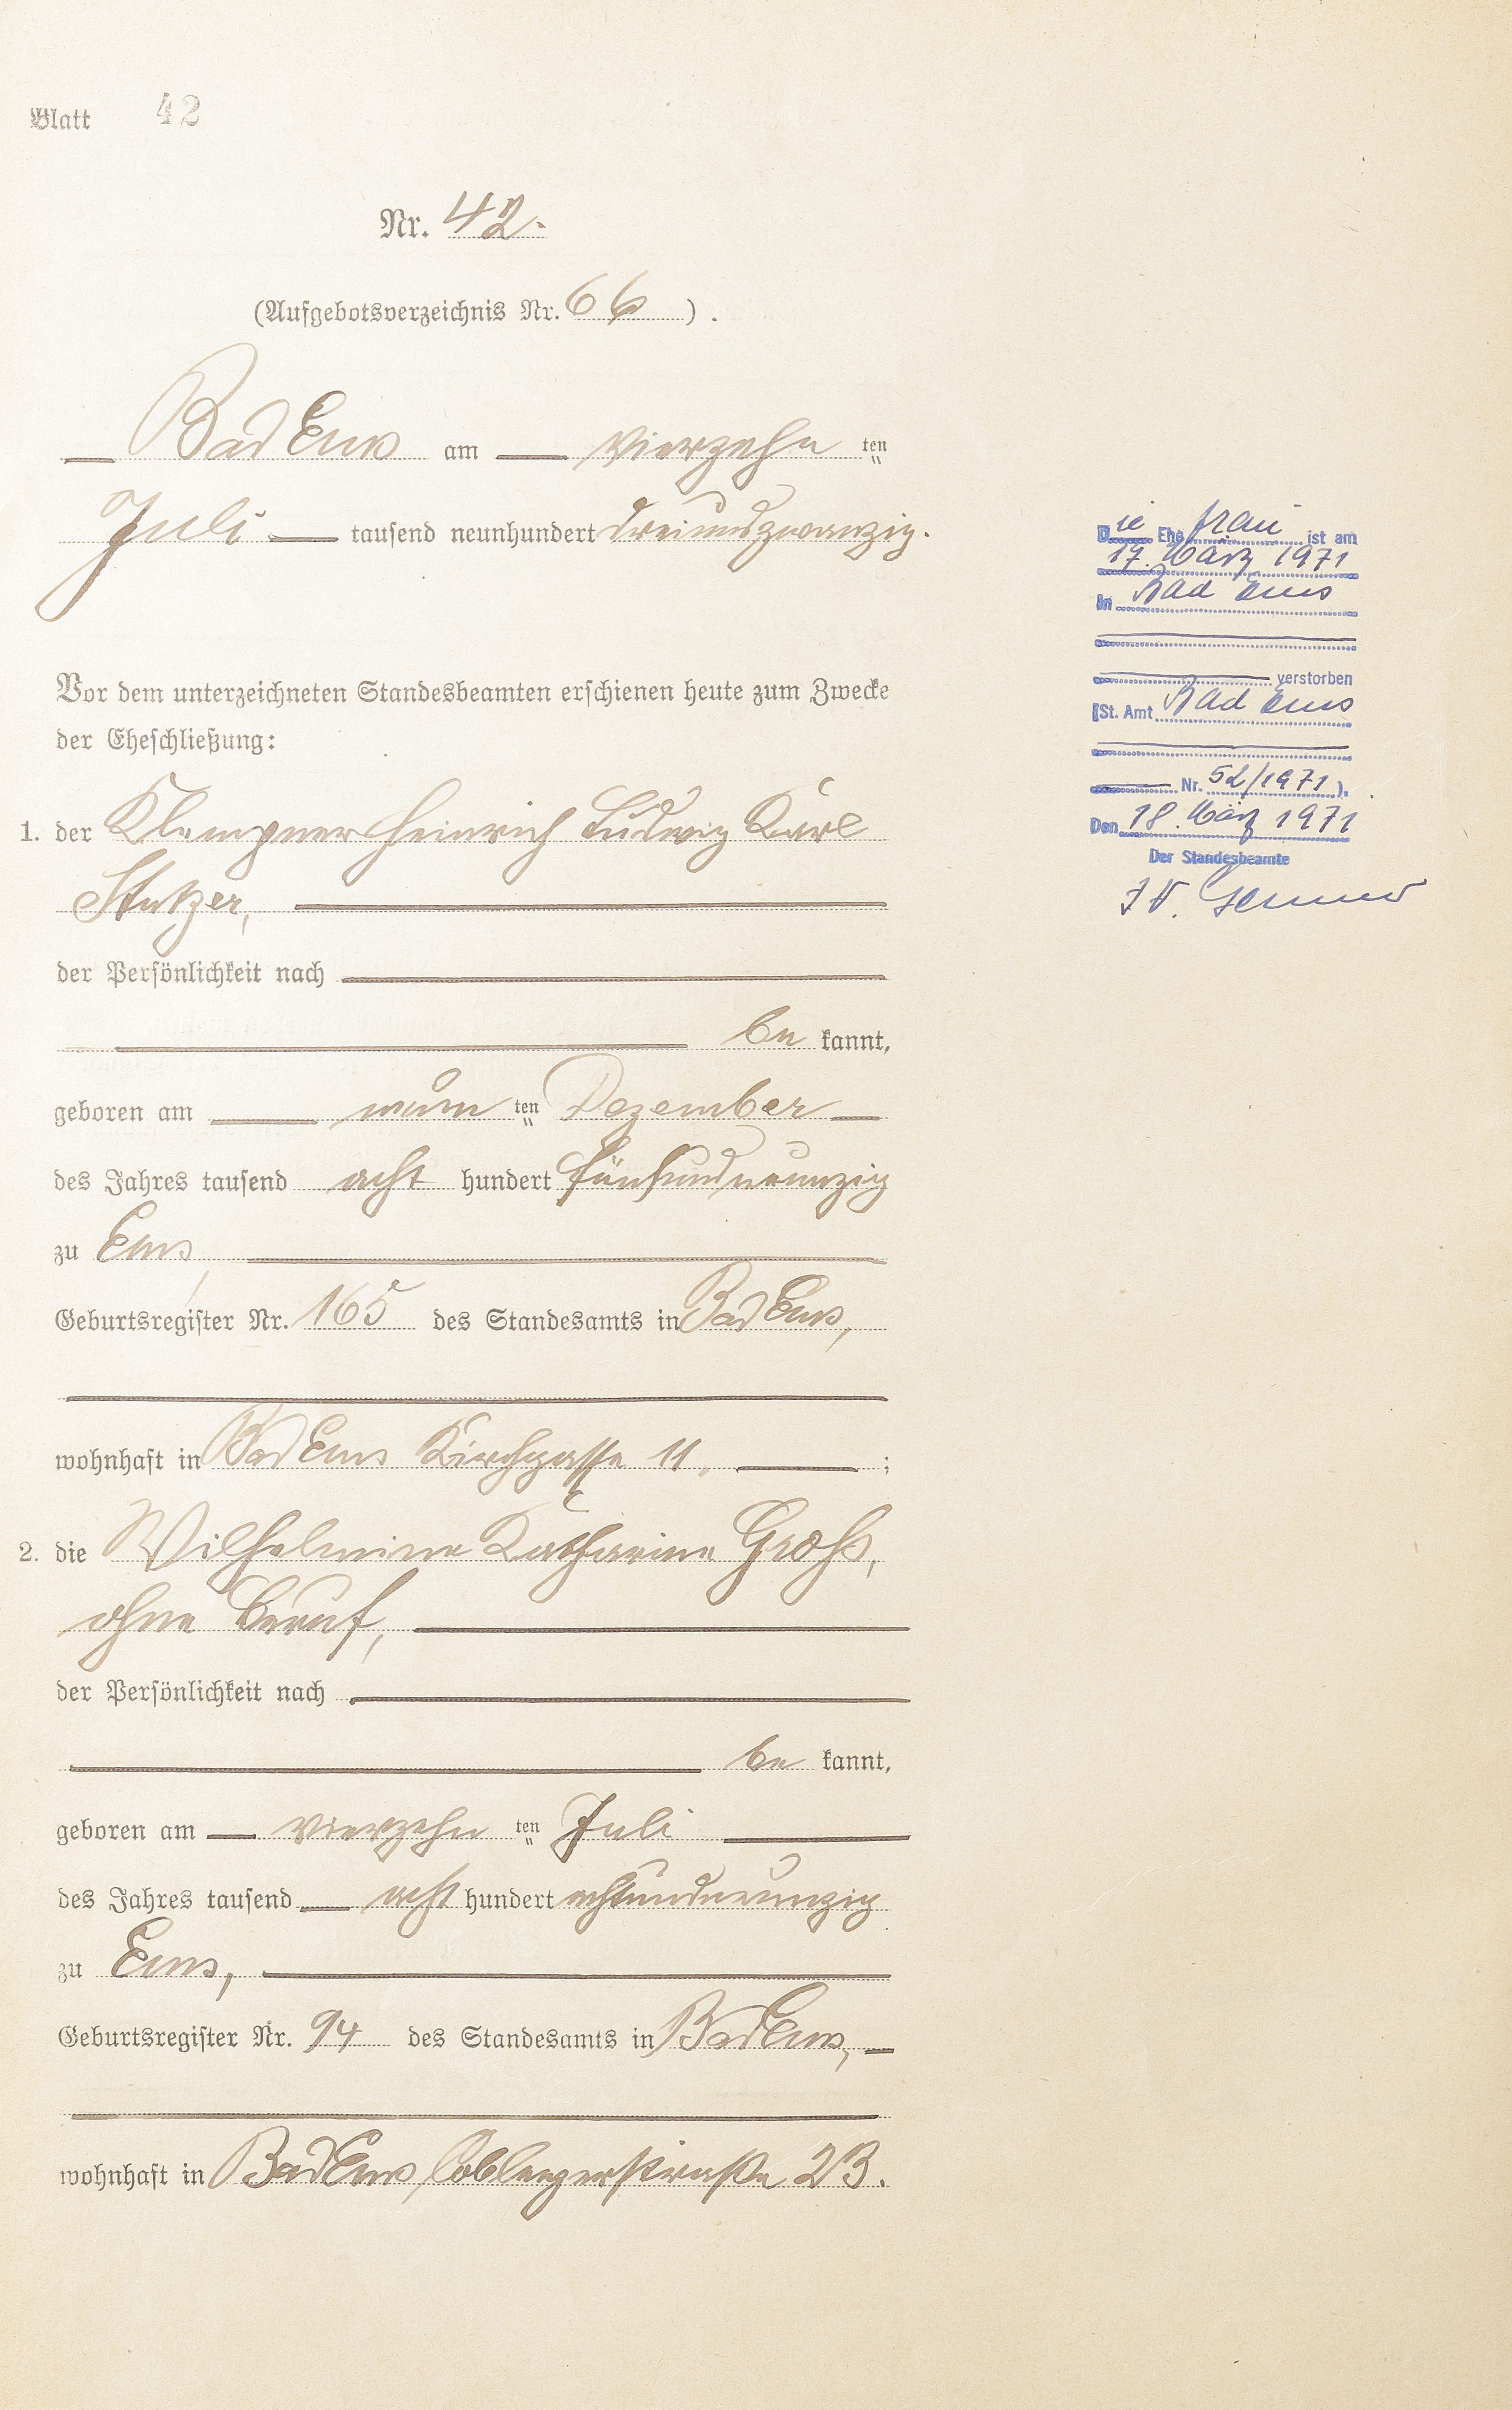 Blatt 42
Nr. 42.
(Aufgebotsverzeichnis Nr. 66).
Bad Ems am vierzehn ten
Juli tausend neunhundert dreiundzwanzig.
Vor dem unterzeichneten Standesbeamten erschienen heute zum Zwecke
der Eheschließung:
1. der Klempner Heinrich Ludwig Karl
Stutzer,
der Persönlichkeit nach
be kannt,
geboren am neun ten Dezember
des Jahres tausend acht hundert fünfundneunzig
zu Ems,
Geburtsregister Nr. 165 des Standesamts in Bad Ems,
wohnhaft in Bad Ems Kirchgasse 11.;
2. die Wilhelmine Katharine Groß,
ohne Beruf,
der Persönlichkeit nach
be kannt,
geboren am vierzehn ten Juli
des Jahres tausend acht hundert achtundneunzig
zu Ems,
Geburtsregister Nr. 94 des Standesamts in Bad Ems,
wohnhaft in Bad Ems, Coblenzerstraße 23.
Die Ehefrau ist am
17. März 1971
in Bad Ems
verstorben
(St. Amt Bad Ems
Nr. 52/1971).
Den 18. März 1971
Der Standesbeamte
I V.